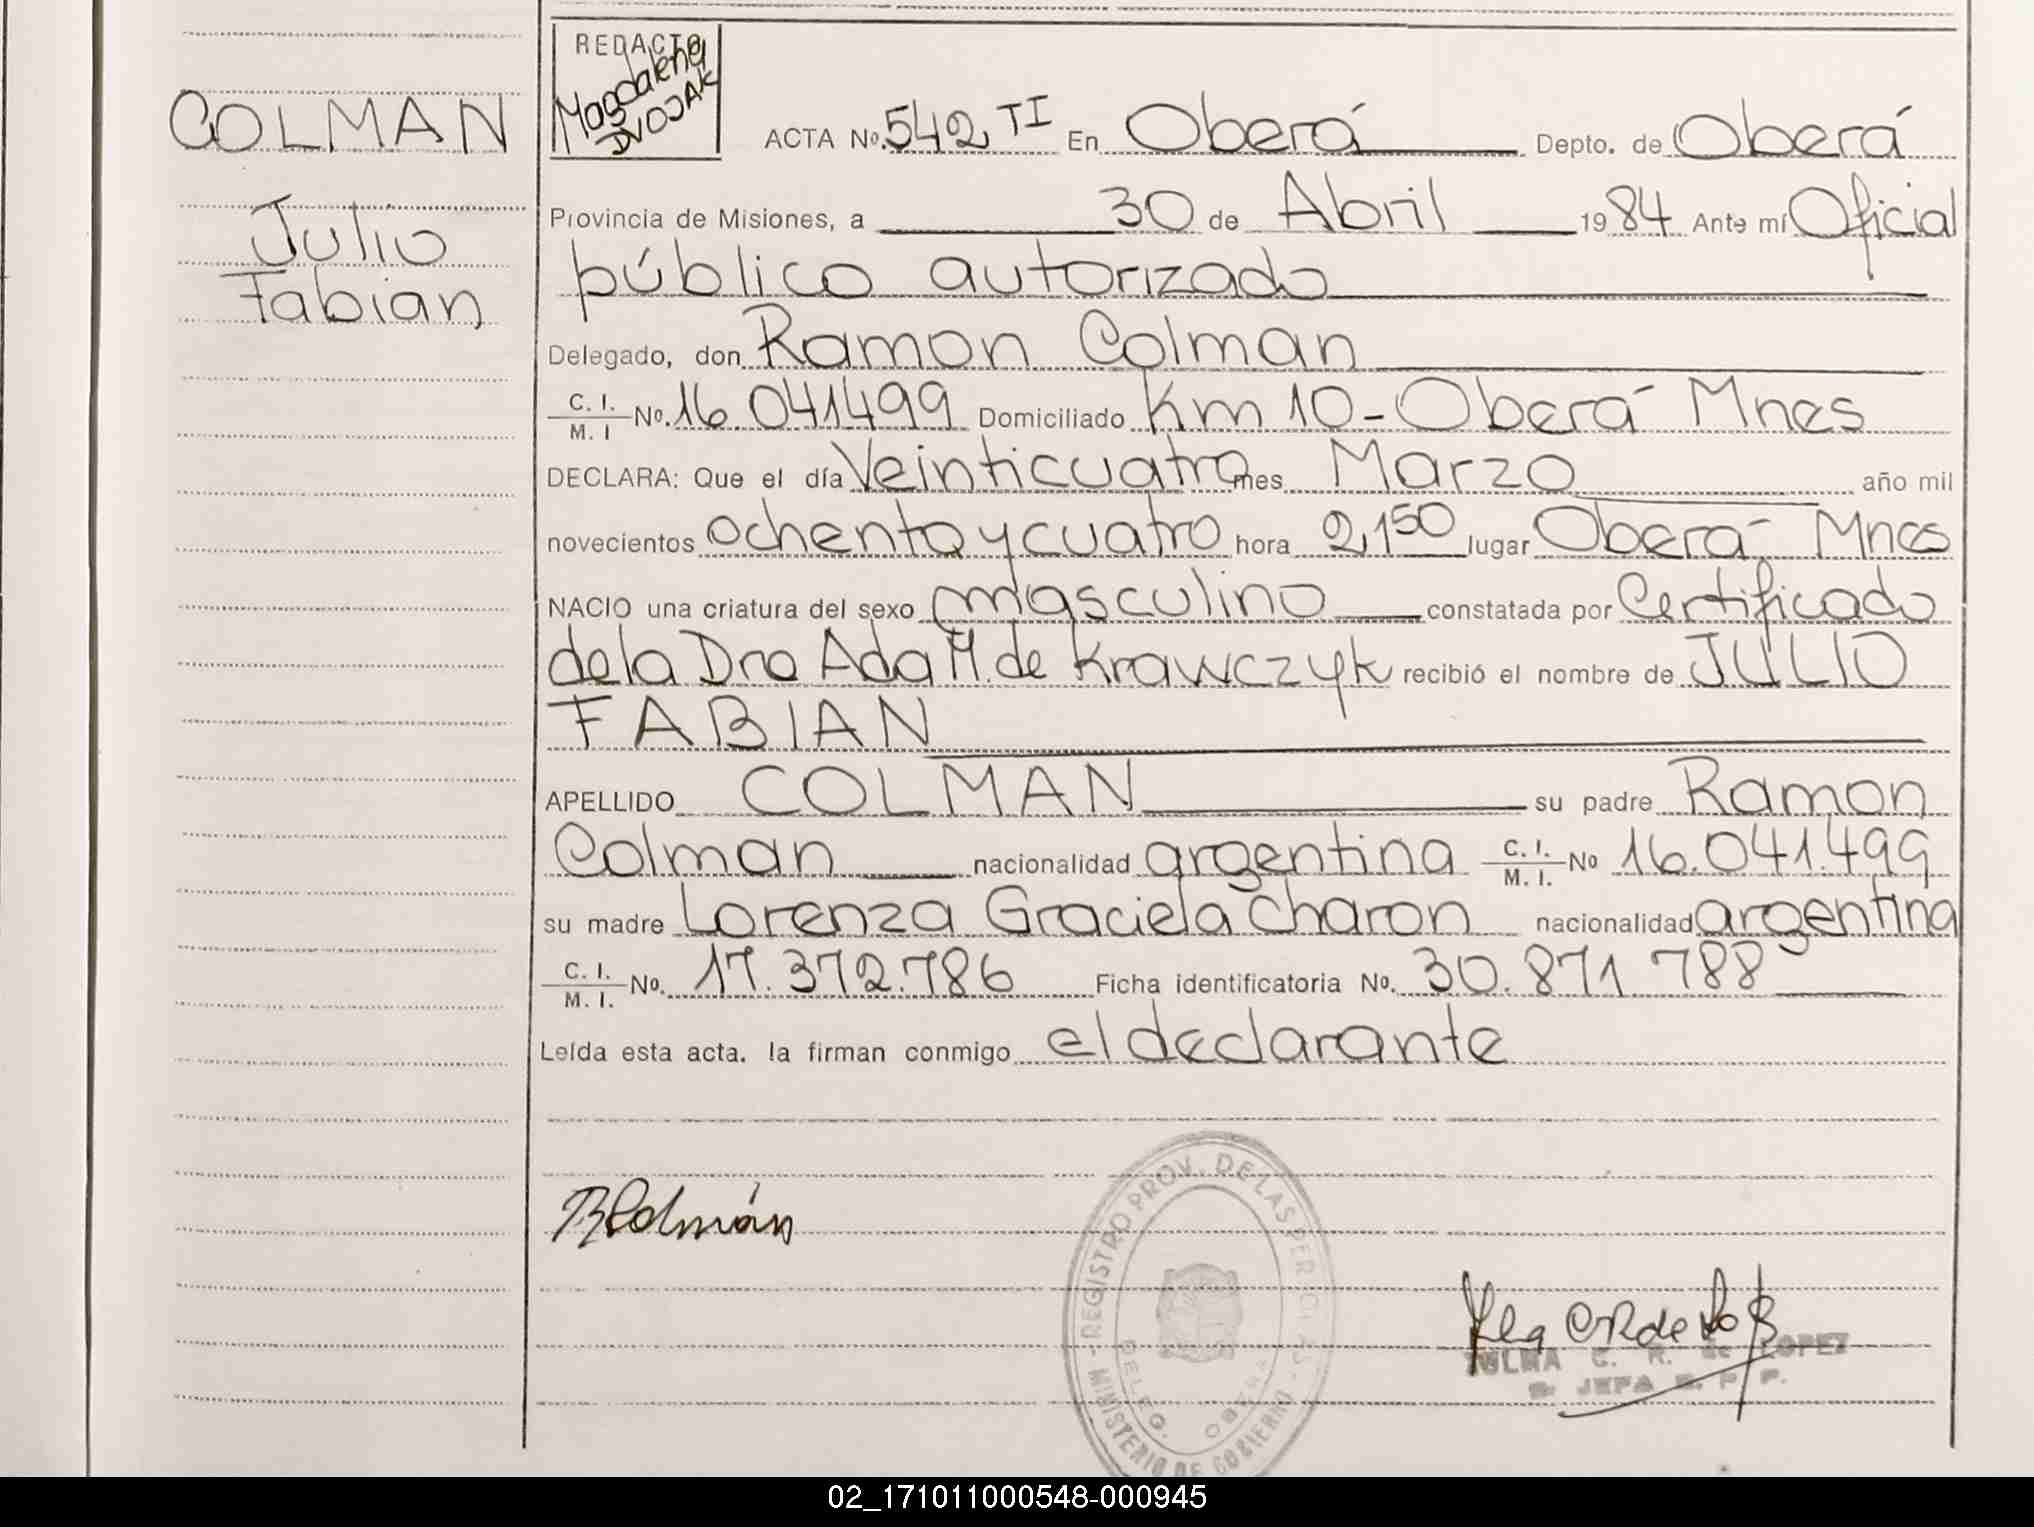 COLMAN
Julio
Fabian
REDACTO
Magdalena
DVOJAK
ACTA No. 542 TI En Oberá Depto. de Oberá
Provincia de Misiones, a 30 de Abril 1984 Ante mí Oficial
público autorizado
Delegado, don Ramon Colman
C. I. / M. I No. 16.041499 Domiciliado Km 10-Oberá Mnes
DECLARA: Que el día Veinticuatro mes Marzo año mil
novecientos ochenta y cuatro hora 2,150 lugar Oberá Mnes
NACIO una criatura del sexo masculino constatada por Certificado
de la Dra Ada M. de Krawczyk recibió el nombre de JULIO
FABIAN
APELLIDO COLMAN su padre Ramon
Colman nacionalidad argentina C. I. / M. I. No 16.041.499
su madre Lorenza Graciela Charon nacionalidad argentina
C. I. / M. I. No. 17.372.786 Ficha identificatoria No. 30.871.788
Leída esta acta. la firman conmigo el declarante
RColmán
- REGISTRO PROV. DE LAS PERSONAS -
MINISTERIO DE GOBIERNO
DELEG. OBERA
C. R. de LOPEZ
JEFA
02_171011000548-000945